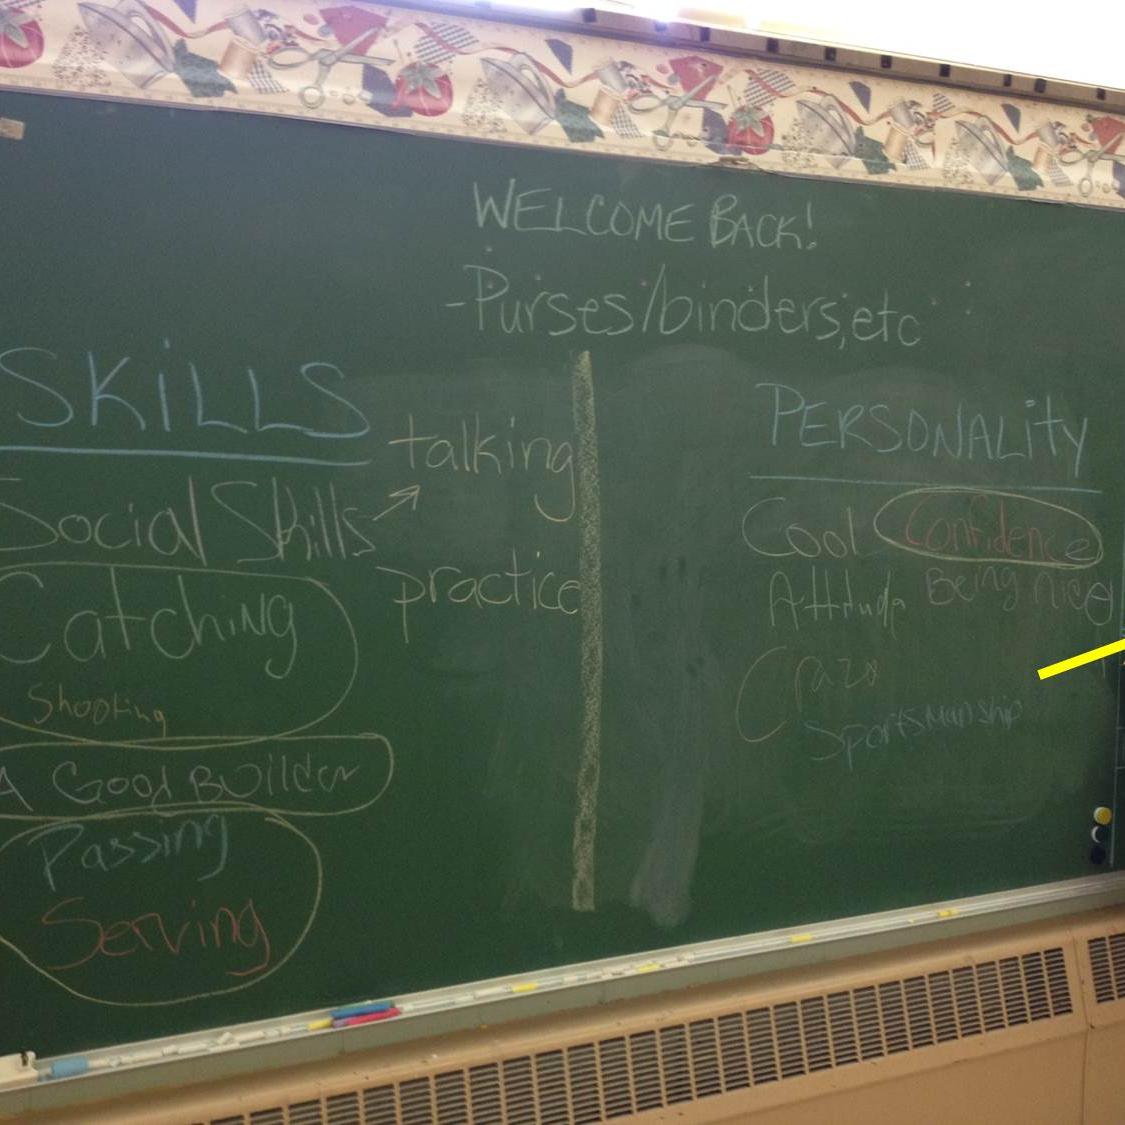 WELCOME BACK!
-Purses/binders,etc
SKiLLS
talking
Social Skills
practice
Catching
Shooting
A Good BUilder
Passing
Serving
PERSONALitY
Cool Confidence
Being nice
Sportsmanship